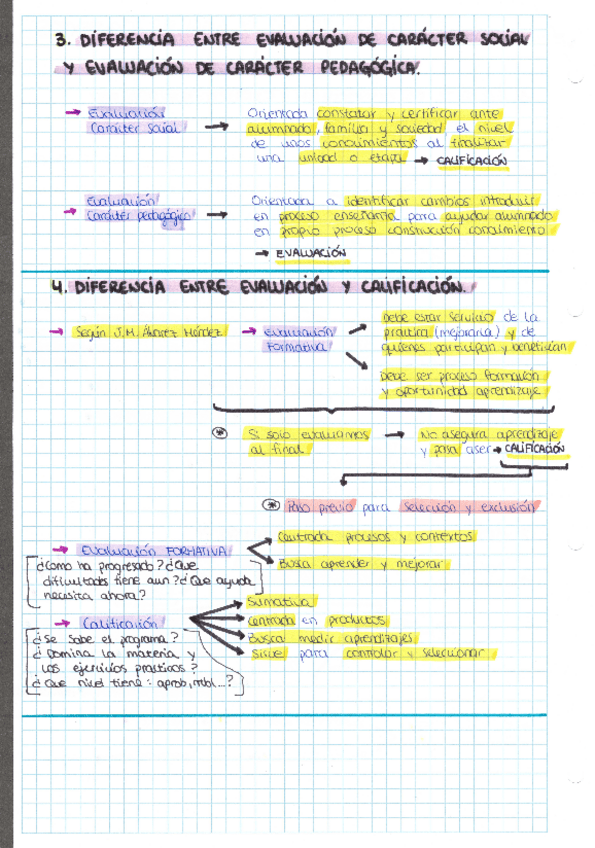 3. DIFERENCIA ENTRE EVALUACIÓN DE CARÁCTER SOCIAL
Y EVALUACIÓN DE CARÁCTER PEDAGÓGICA.
→ Evaluación
Carácter social →
Orientada constatar y certificar ante
alumnado, familia y sociedad el nivel
de unos conocimientos al finalizar
una unidad o etapa → CALIFICACIÓN
→ Evaluación
Carácter pedagógico →
Orientada a identificar cambios introducir
en proceso enseñanza para ayudar alumnado
en propio proceso construcción conocimiento
→ EVALUACIÓN
4. DIFERENCIA ENTRE EVALUACIÓN Y CALIFICACIÓN.
→ Según J.M. Álvarez Méndez → evaluación
Formativa
Debe estar servicio de la
practica (mejorarla) y de
quienes participan y benefician
Debe ser proceso formación
y oportunidad aprendizaje
* Si solo evaluamos
al final → No asegura aprendizaje
y pasa aser → CALIFICACIÓN
* Paso previo para selección y exclusión
→ Evaluación FORMATIVA
Centrada procesos y contextos
Busca aprender y mejorar
¿Como ha progresado? ¿Que
dificultades tiene aun? ¿Que ayuda
necesita ahora?
→ Calificación
Sumativa
Centrada en productos
Busca medir aprendizajes
Sirve para controlar y seleccionar
¿Se sabe el programa?
¿Domina la materia y
los ejercicios practicos?
¿Que nivel tiene: aprob, ntbl...?